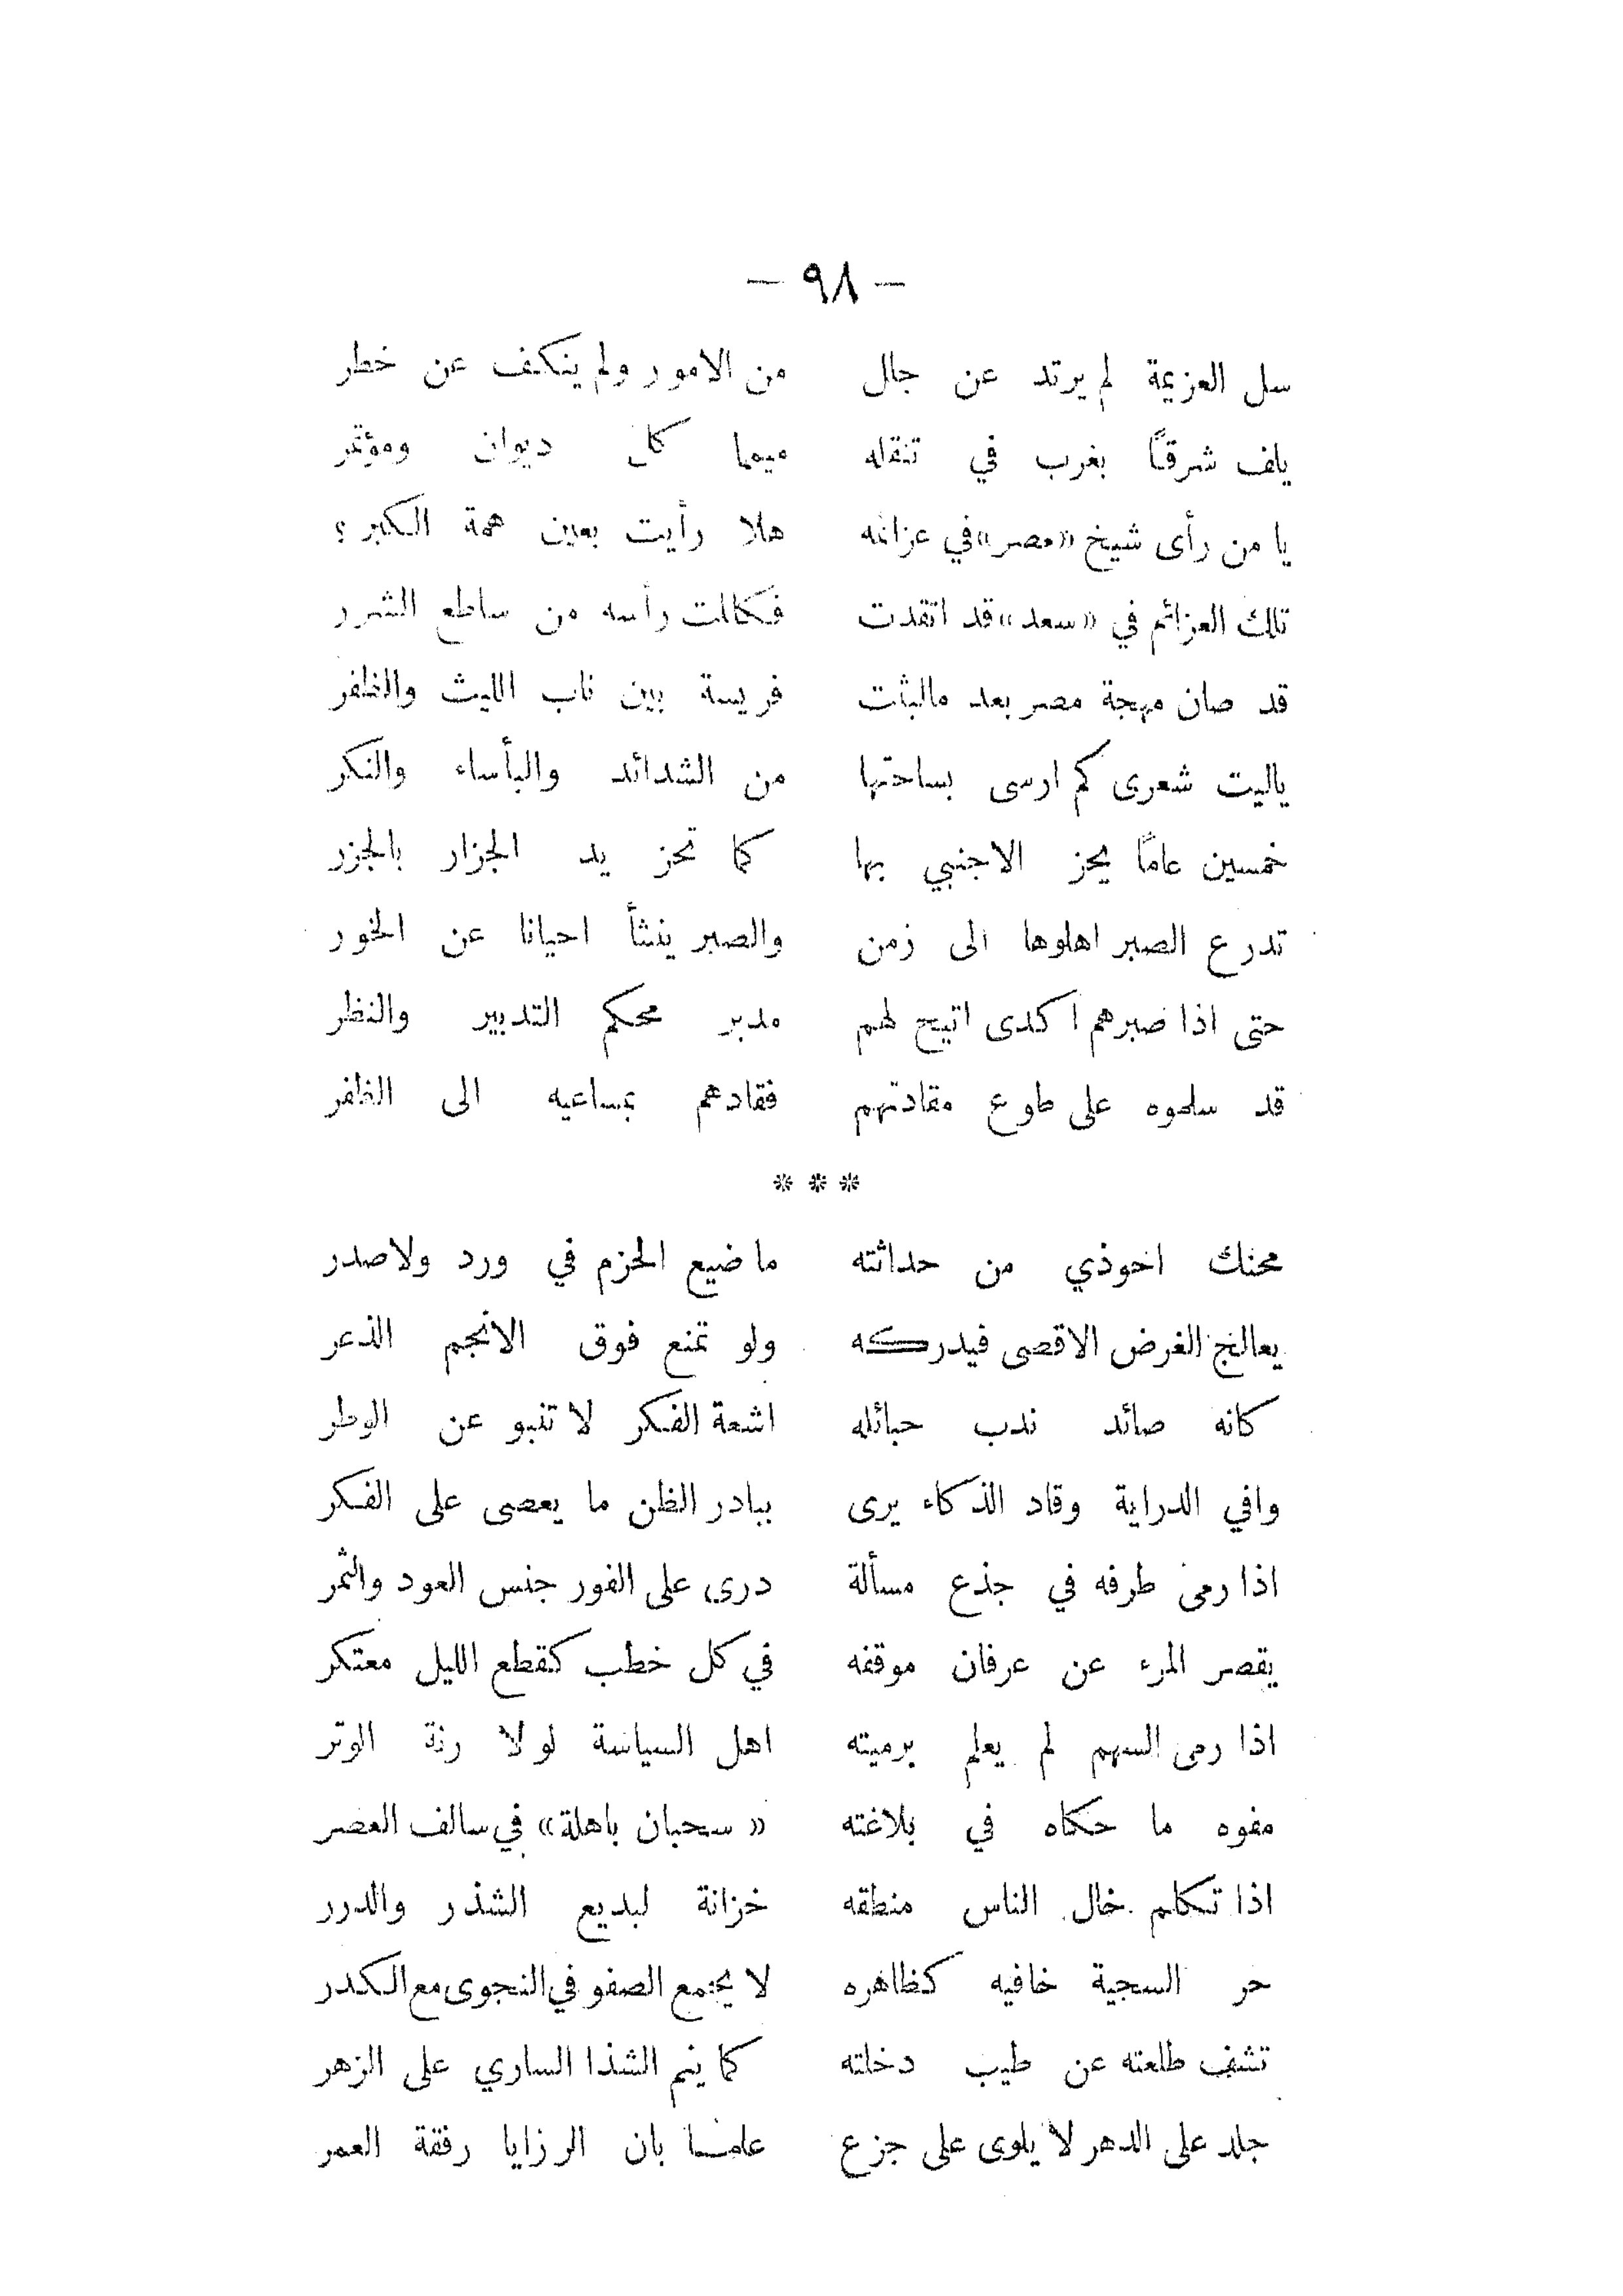 — ٩٨ —
سل العزيمة لم يرتد عن جلل من الامور ولم ينكف عن خطر
يلف شرقاً بغرب في تنقله ميمما كل ديوان ومؤتمر
يا من رأى شيخ «مصر» في عزائمه هلا رأيت بعين همة الكبر ؟
تلك العزائم في «سعد» قد اتقدت فكللت رأسه من ساطع الشرر
قد صان مهجة مصر بعد مالبثت فريسة بين ناب الليث والظفر
ياليت شعرى كم ارسى بساحتها من الشدائد والبأساء والنكر
خمسين عاماً يحز الاجنبي بها كما تحز يد الجزار بالجزر
تدرع الصبر اهلوها الى زمن والصبر ينشأ احيانا عن الخور
حتى اذا صبرهم اكدى اتيح لهم مدبر محكم التدبير والنظر
قد سلموه على طوع مقادتهم فقادهم بمساعيه الى الظفر
* * *
محنك احوذي من حداثته ما ضيع الحزم في ورد ولا صدر
يعالج الغرض الاقصى فيدركه ولو تمنع فوق الانجم الذعر
كانه صائد ندب حبائله اشعة الفكر لا تنبو عن الوطر
وافي الدراية وقاد الذكاء يرى ببادر الظن ما يعصى على الفكر
اذا رمى طرفه في جذع مسألة درى على الفور جنس العود والثمر
يقصر المرء عن عرفان موقفه في كل خطب كقطع الليل معتكر
اذا رمى السهم لم يعلم برميته اهل السياسة لولا رنة الوتر
مفوه ما حكاه في بلاغته « سحبان باهلة» في سالف العصر
اذا تكلم خال الناس منطقه خزانة لبديع الشذر والدرر
حر السجية خافيه كظاهره لا يجمع الصفو في النجوى مع الكدر
تشف طلعته عن طيب دخلته كما ينم الشذا الساري على الزهر
جلد على الدهر لا يلوى على جزع علمـا بان الرزايا رفقة العمر